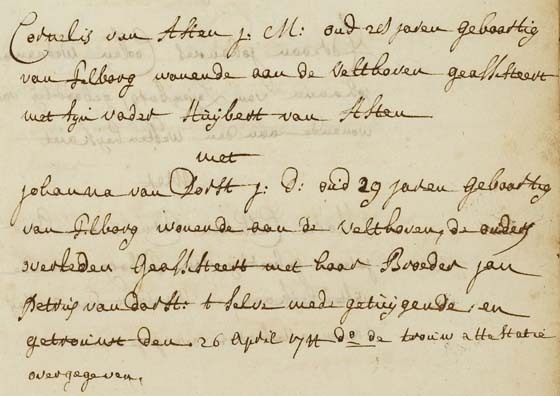 Cornelis van Asten j: M: oud jaren geboortig
van Tilborg wonende aan de Velthoven geassisteert
met sijn vader Huijbert van Asten
met
johanna van Dorst j: D: oud 29 jaren geboortig
van Tilborg wonende aan de Velthoven, de ouders
overleden Geassisteert met haar Broeder jan
Petrus van dorst: t selve mede getuijgende: en
getrouwt den 26 April do de trouw attestatie
overgegeven.